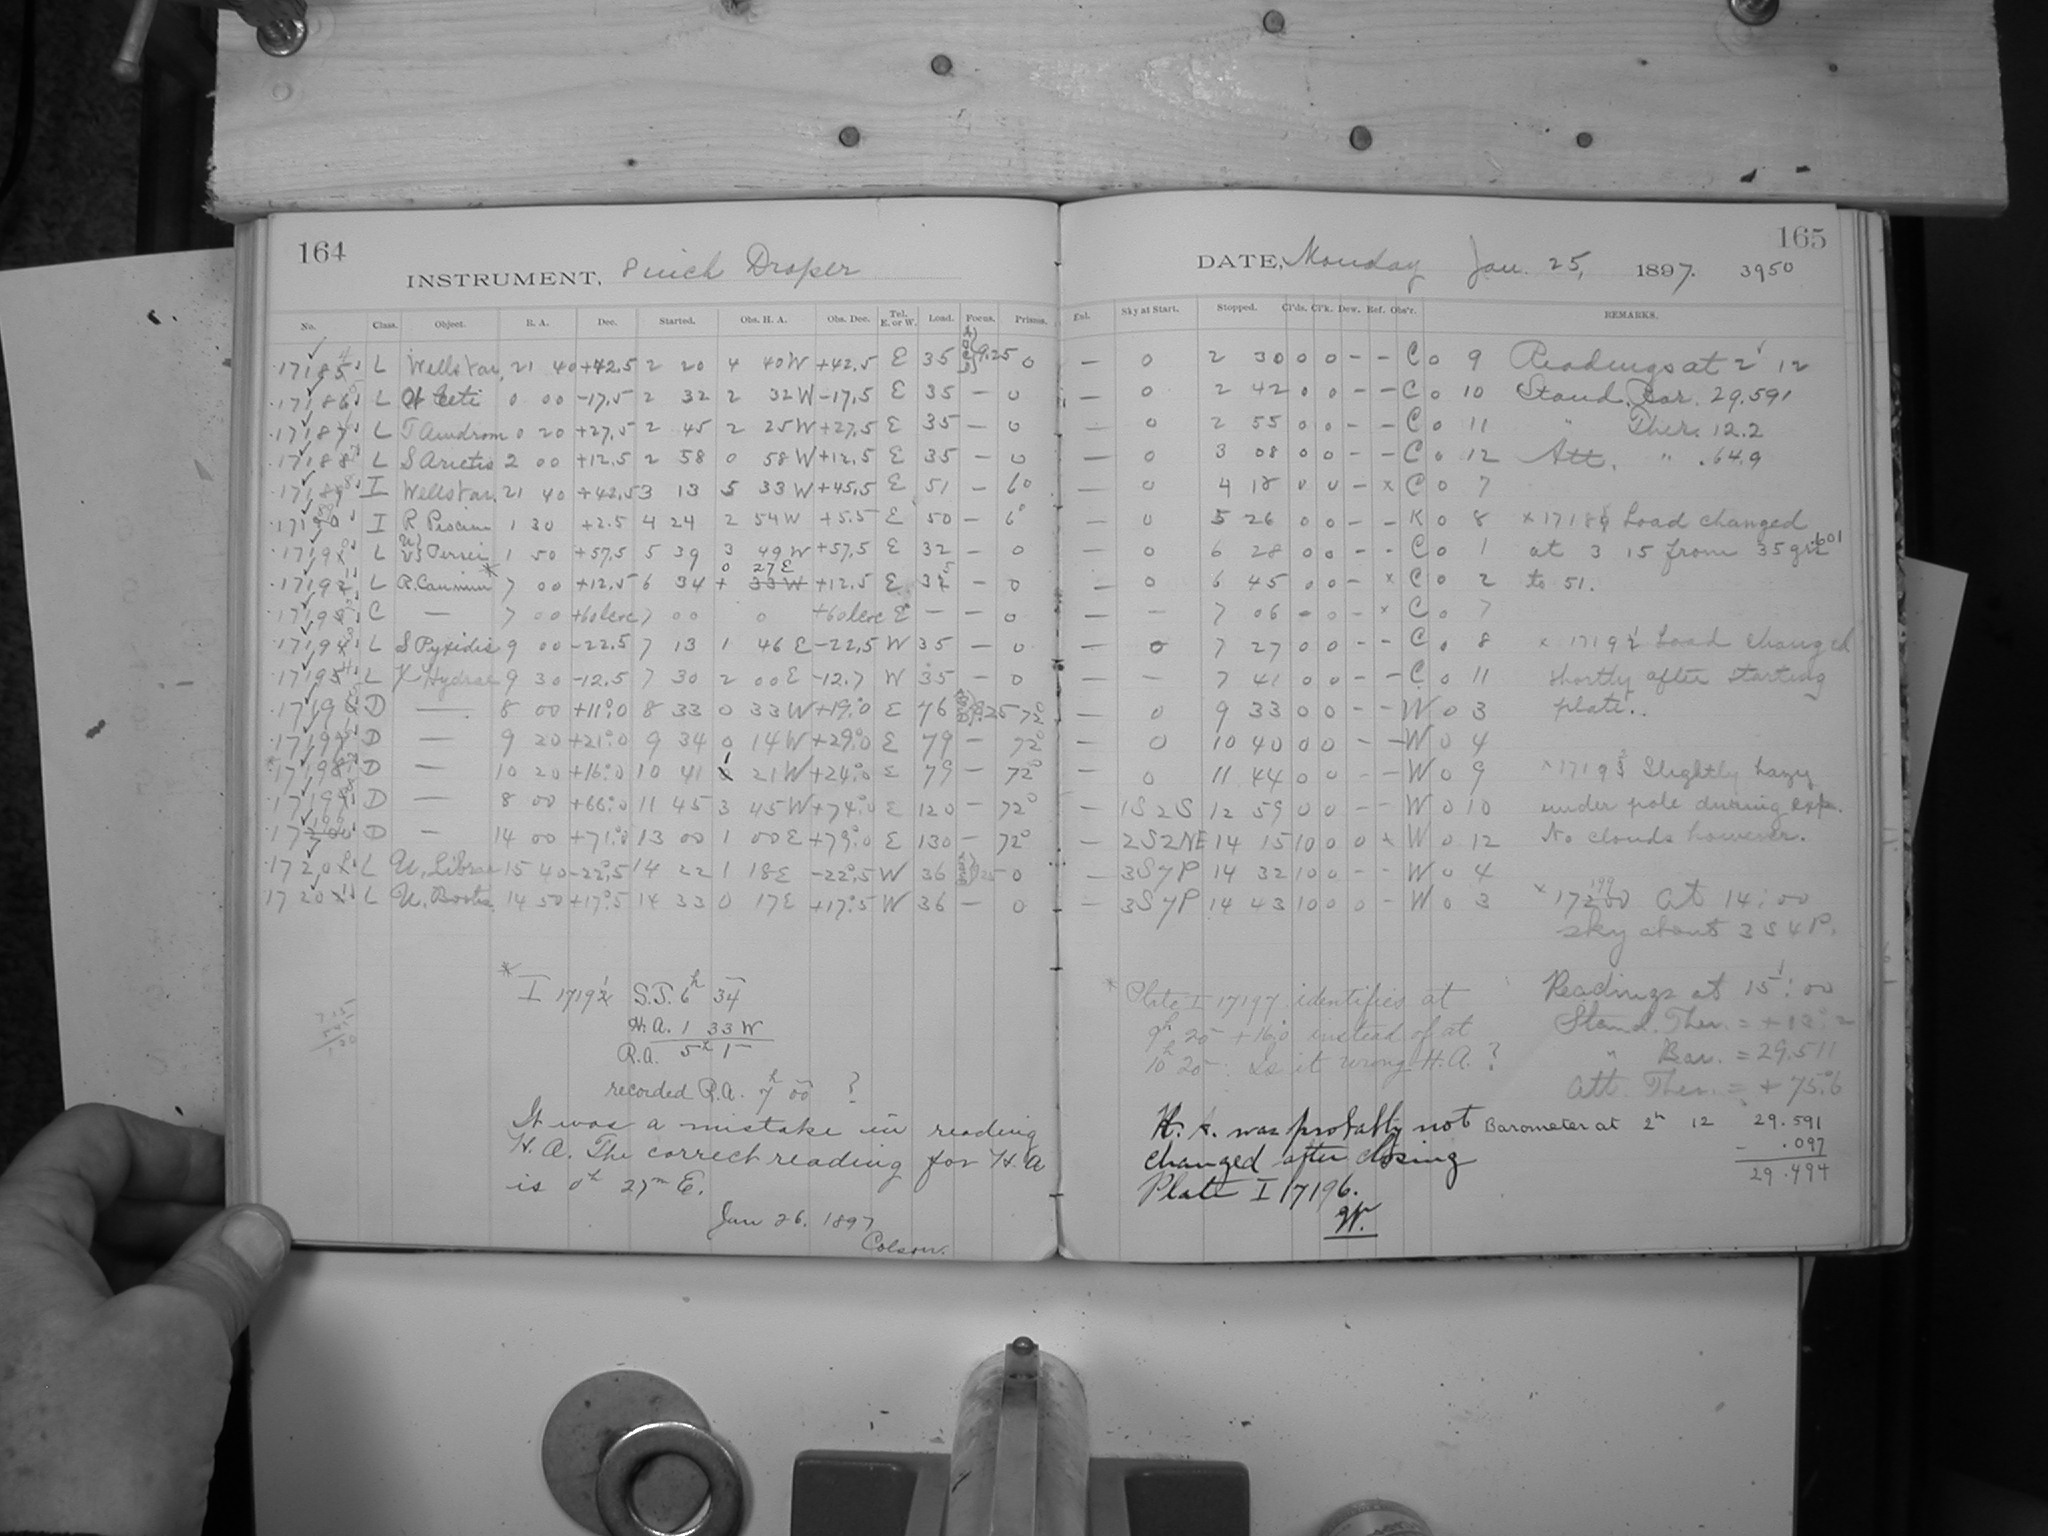 164
INSTRUMENT, 8 inch Draper
No. Class. Object. R. A. Dec. Started. Obs. H. A. Obs. Dec. Tel. E. or W. Load. Focus. Prisms.
L Wells Var. 21 40 +42.5 2 20 4 40 W +42.5 E 35 9.25 0
L Ceti 0 00 -17.5 2 32 2 32 W -17.5 E 35 — 0
L T Androm 0 20 +27.5 2 45 2 25 W +27.5 E 35 — 0
L S Arietis 2 00 +12.5 2 58 0 58 W +12.5 E 35 — 0
I Wells Var. 21 40 +42.5 3 13 5 33 W +45.5 E 51 — 6°
I R Piscium 1 30 +2.5 4 24 2 54 W +5.5 E 50 — 6°
L U} V} Persei 1 50 +57.5 5 39 3 49 W +57.5 E 32 — 0
L R. Canmin * 7 00 +12.5 6 34 0 27 E +12.5 E 35 — 0
C — 7 00 +60 7 00 0 +60 E — — 0
L S Pyxidis 9 00 -22.5 7 13 1 46 E -22.5 W 35 — 0
L X Hydrae 9 30 -12.5 7 30 2 00 E -12.7 W 35 — 0
D — 8 00 +11°.0 8 33 0 33 W +19°.0 E 76 9.25 72°
D — 9 20 +21°.0 9 34 0 14 W +29°.0 E 79 — 72°
D — 10 20 +16°.0 10 41 1 21 W +24°.0 E 79 — 72°
D — 8 00 +66°.0 11 45 3 45 W +74°.0 E 120 — 72°
D — 14 00 +71°.0 13 00 1 00 E +79°.0 E 130 — 72°
L U. Librae 15 40 -22°.5 14 22 1 18 E -22°.5 W 36 0
L U. Bootis 14 50 +17°.5 14 33 0 17 E +17°.5 W 36 — 0
* I 17191 S.T. 6h 34
H.A. 1 33 W
R.A. 5h 1
recorded R.A. 7h 00 ?
It was a mistake in reading
H. A. The correct reading for H. A
is 0h 27m E.
Jan 26. 1897
Colson.
165
DATE, Monday Jan. 25, 1897. 3950
Enl. Sky at Start. Stopped. Cl'ds. Cl'k. Dew. Ref. Obs'r. REMARKS.
— 0 2 30 0 0 - - C 0 9 Readings at 2 12
— 0 2 42 0 0 - - C 0 10 Stand. Bar. 29.591
— 0 2 55 0 0 - - C 0 11 " Ther. 12.2
— 0 3 08 0 0 - - C 0 12 Att. " .64.9
— 0 4 18 0 0 - x C 0 7
— 0 5 26 0 0 - - K 0 8 x Load changed
— 0 6 28 0 0 - - C 0 1 at 3 15 from 35 grs
— 0 6 45 0 0 - x C 0 2 to 51.
— — 7 06 - 0 - x C 0 7
— 0 7 27 0 0 - - C 0 8 x 17191 Load changed
— — 7 41 0 0 - - C 0 11 shortly after starting
— 0 9 33 0 0 - - W 0 3 plate..
— 0 10 40 0 0 - - W 0 4
— 0 11 44 0 0 - - W 0 9 x Slightly hazy
— 1S2S 12 59 0 0 - - W 0 10 under pole during exp.
— 2S2NE 14 15 10 0 0 x W 0 12 No clouds however.
— 3S7P 14 32 10 0 - - W 0 4
— 3S7P 14 43 10 0 0 - W 0 3 x 17199 At 14:00
sky about 3S4P.
Readings at 15:00
Stand. Ther. =
" Bar. = 29.511
Att. Ther. = + 75°.6
* Plate I 17197 identifies at
9h 20 + 16°.0 instead of at
10h 20. Is it wrong H.A. ?
H. A. was probably not
changed after closing
Plate I 17196.
W.
Barometer at 2h 12 29.591
- .097
29.494